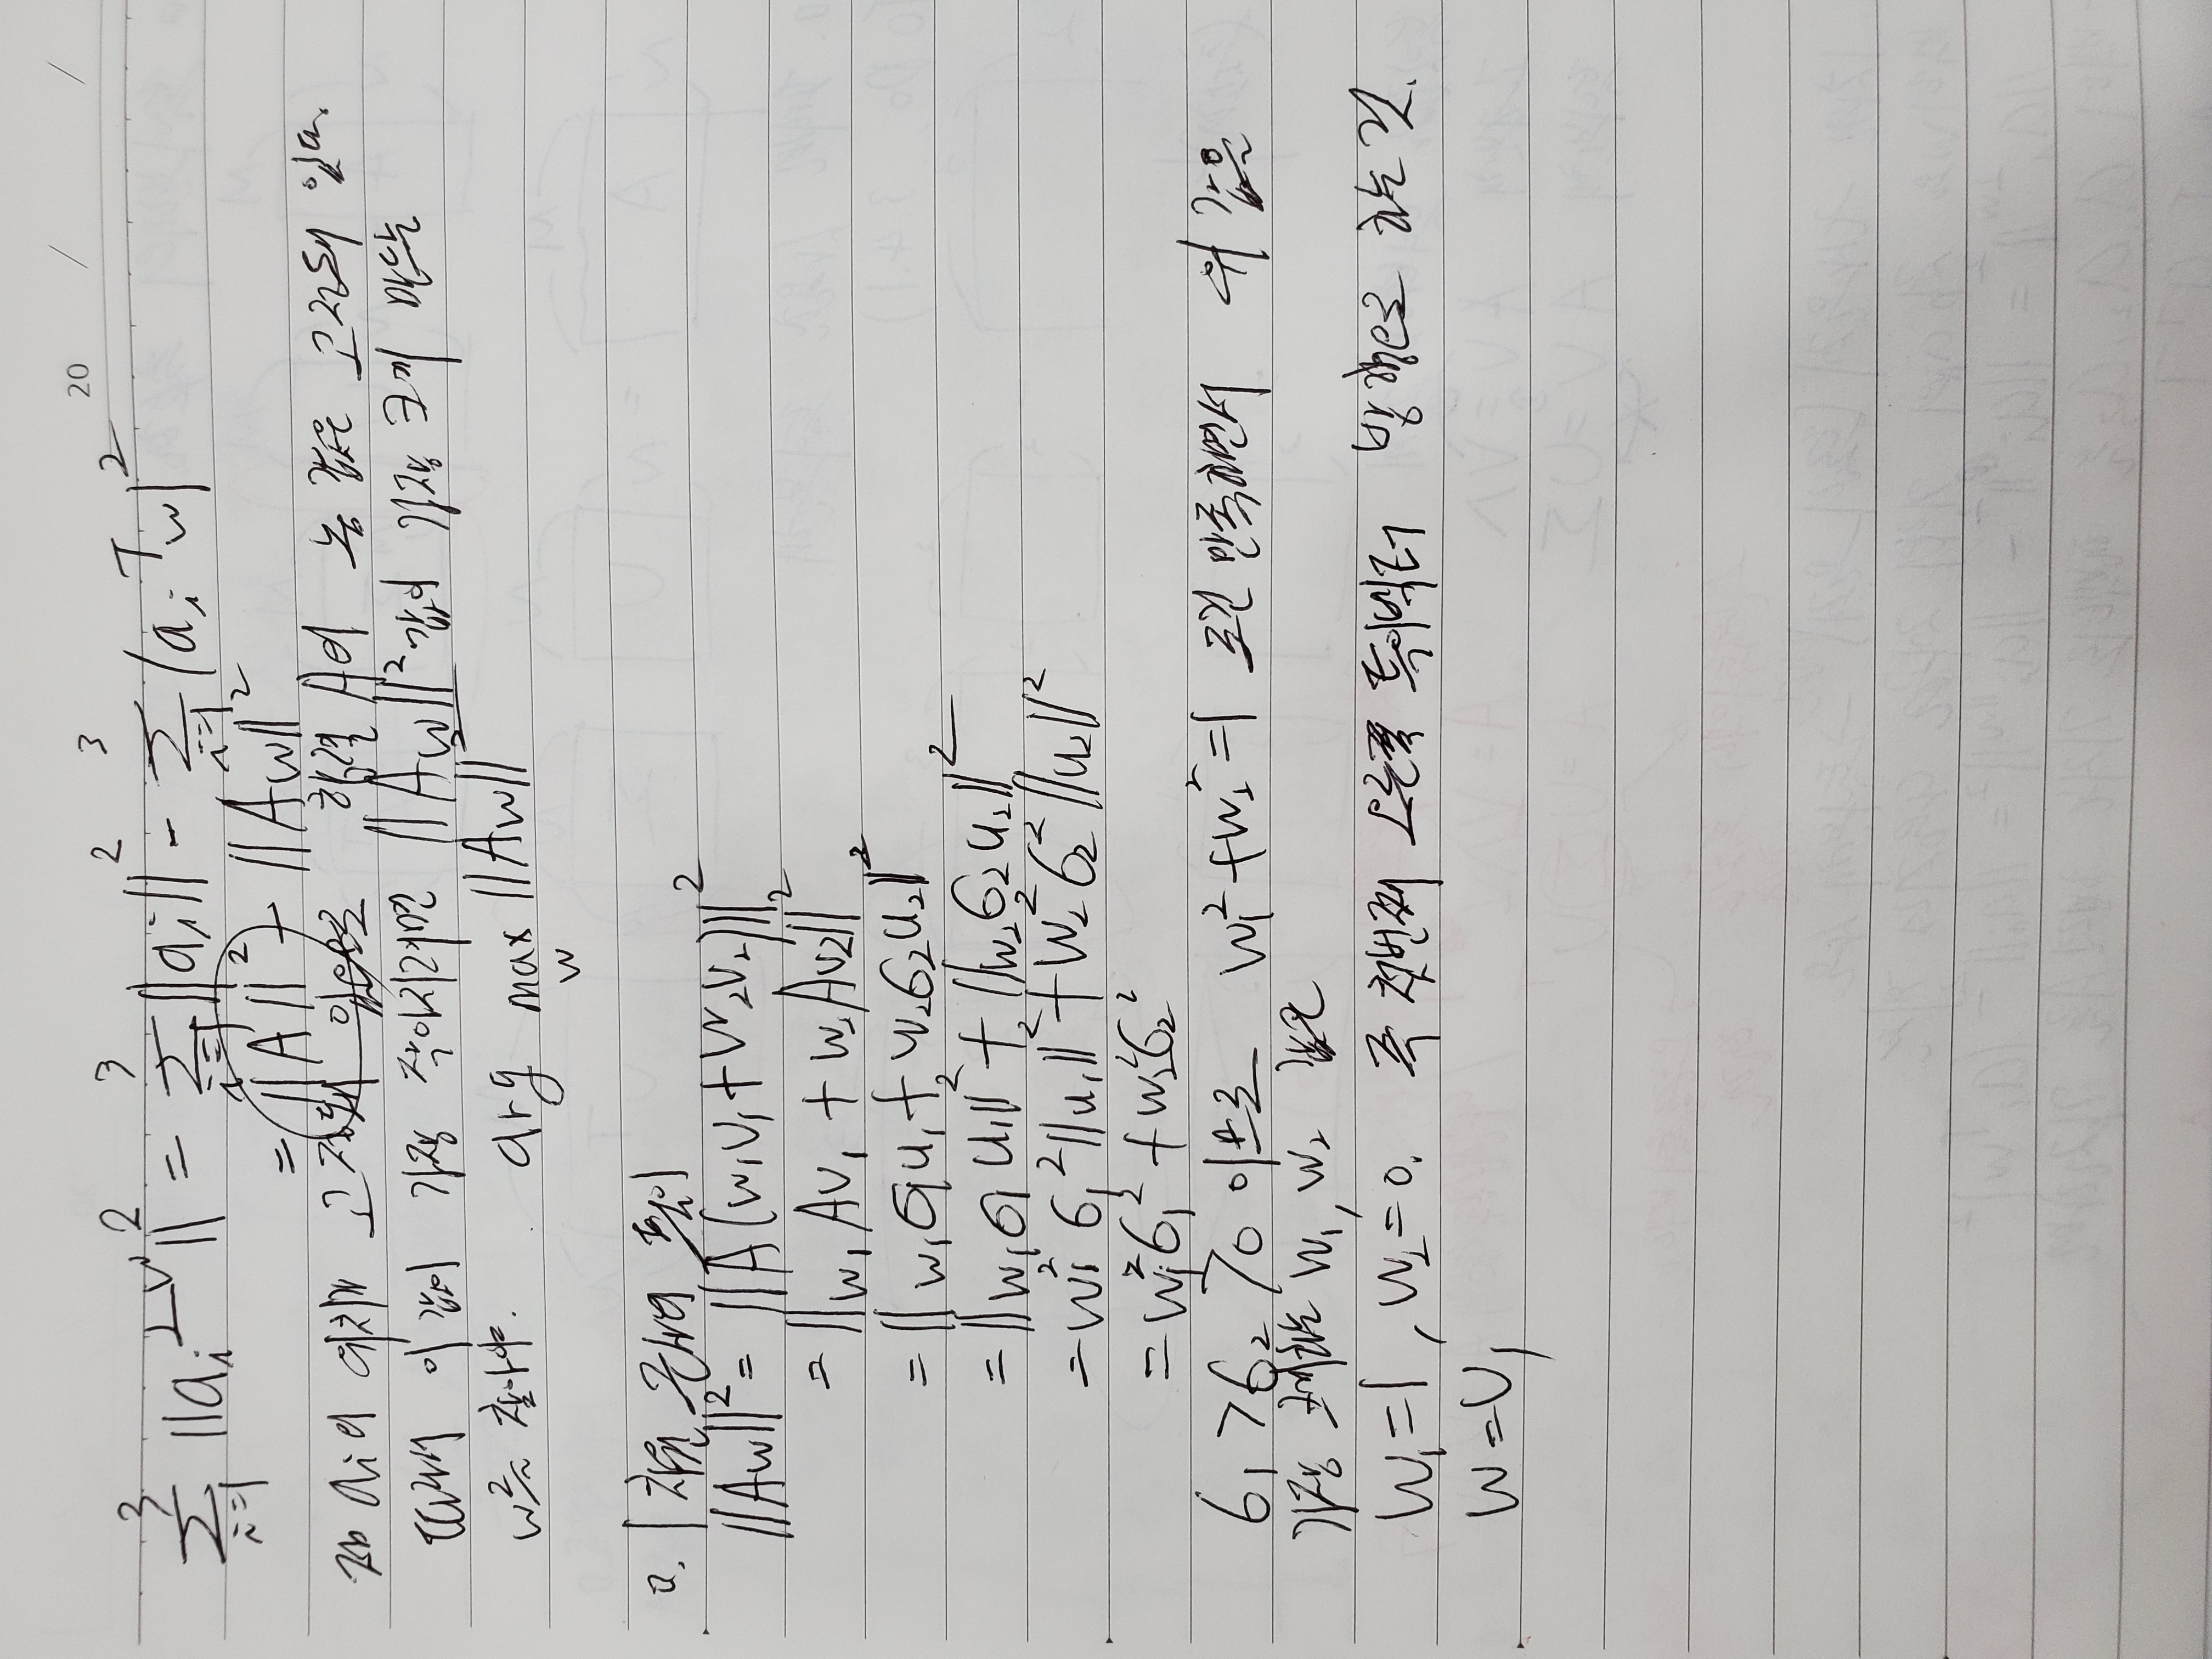 20 / /
3 3 3
Σ ||aᵢ^⊥w||² = Σ ||aᵢ||² - Σ |aᵢᵀw|²
i=1 i=1 i=1
= ||A||² - ||Aw||²
aᵢ의 위치가 고정돼 있으므로 행렬 A의 놈 값은 고정돼 있다.
따라서 이 값이 가장 작아지려면 ||Aw||² 값이 가장 크게 만드는
w를 찾아야. arg max ||Aw||²
w
0. 1차원 근사의 풀이
||Aw||² = ||A(w₁v₁ + w₂v₂)||²
= ||w₁Av₁ + w₂Av₂||²
= ||w₁σ₁u₁ + w₂σ₂u₂||²
= ||w₁σ₁u₁||² + ||w₂σ₂u₂||²
= w₁²σ₁²||u₁||² + w₂²σ₂²||u₂||²
= w₁²σ₁² + w₂²σ₂²
σ₁ > σ₂ > 0 이므로 w₁² + w₂² = 1 조건 만족하면서 위 값을
가장 크게하는 w₁, w₂ 값은
w₁=1, w₂=0. 즉 첫번째 오른쪽 특이벡터 방향으로 하는 것.
w = v₁